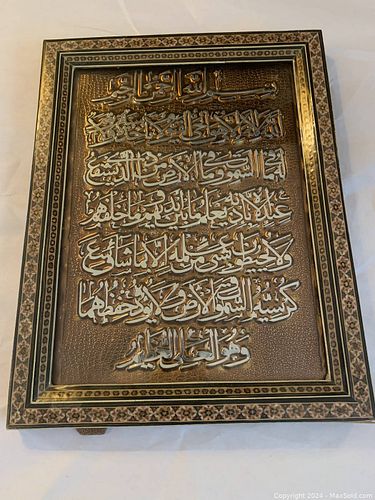 بسم الله الرحمن الرحيم
الله لا إله إلا هو الحي القيوم لا تأخذه سنة ولا نوم
له ما في السموات وما في الأرض من ذا الذي يشفع
عنده إلا بإذنه يعلم ما بين أيديهم وما خلفهم
ولا يحيطون بشيء من علمه إلا بما شاء وسع
كرسيه السموات والأرض ولا يؤده حفظهما
وهو العلي العظيم
Copyright 2024 - MaxSold.com